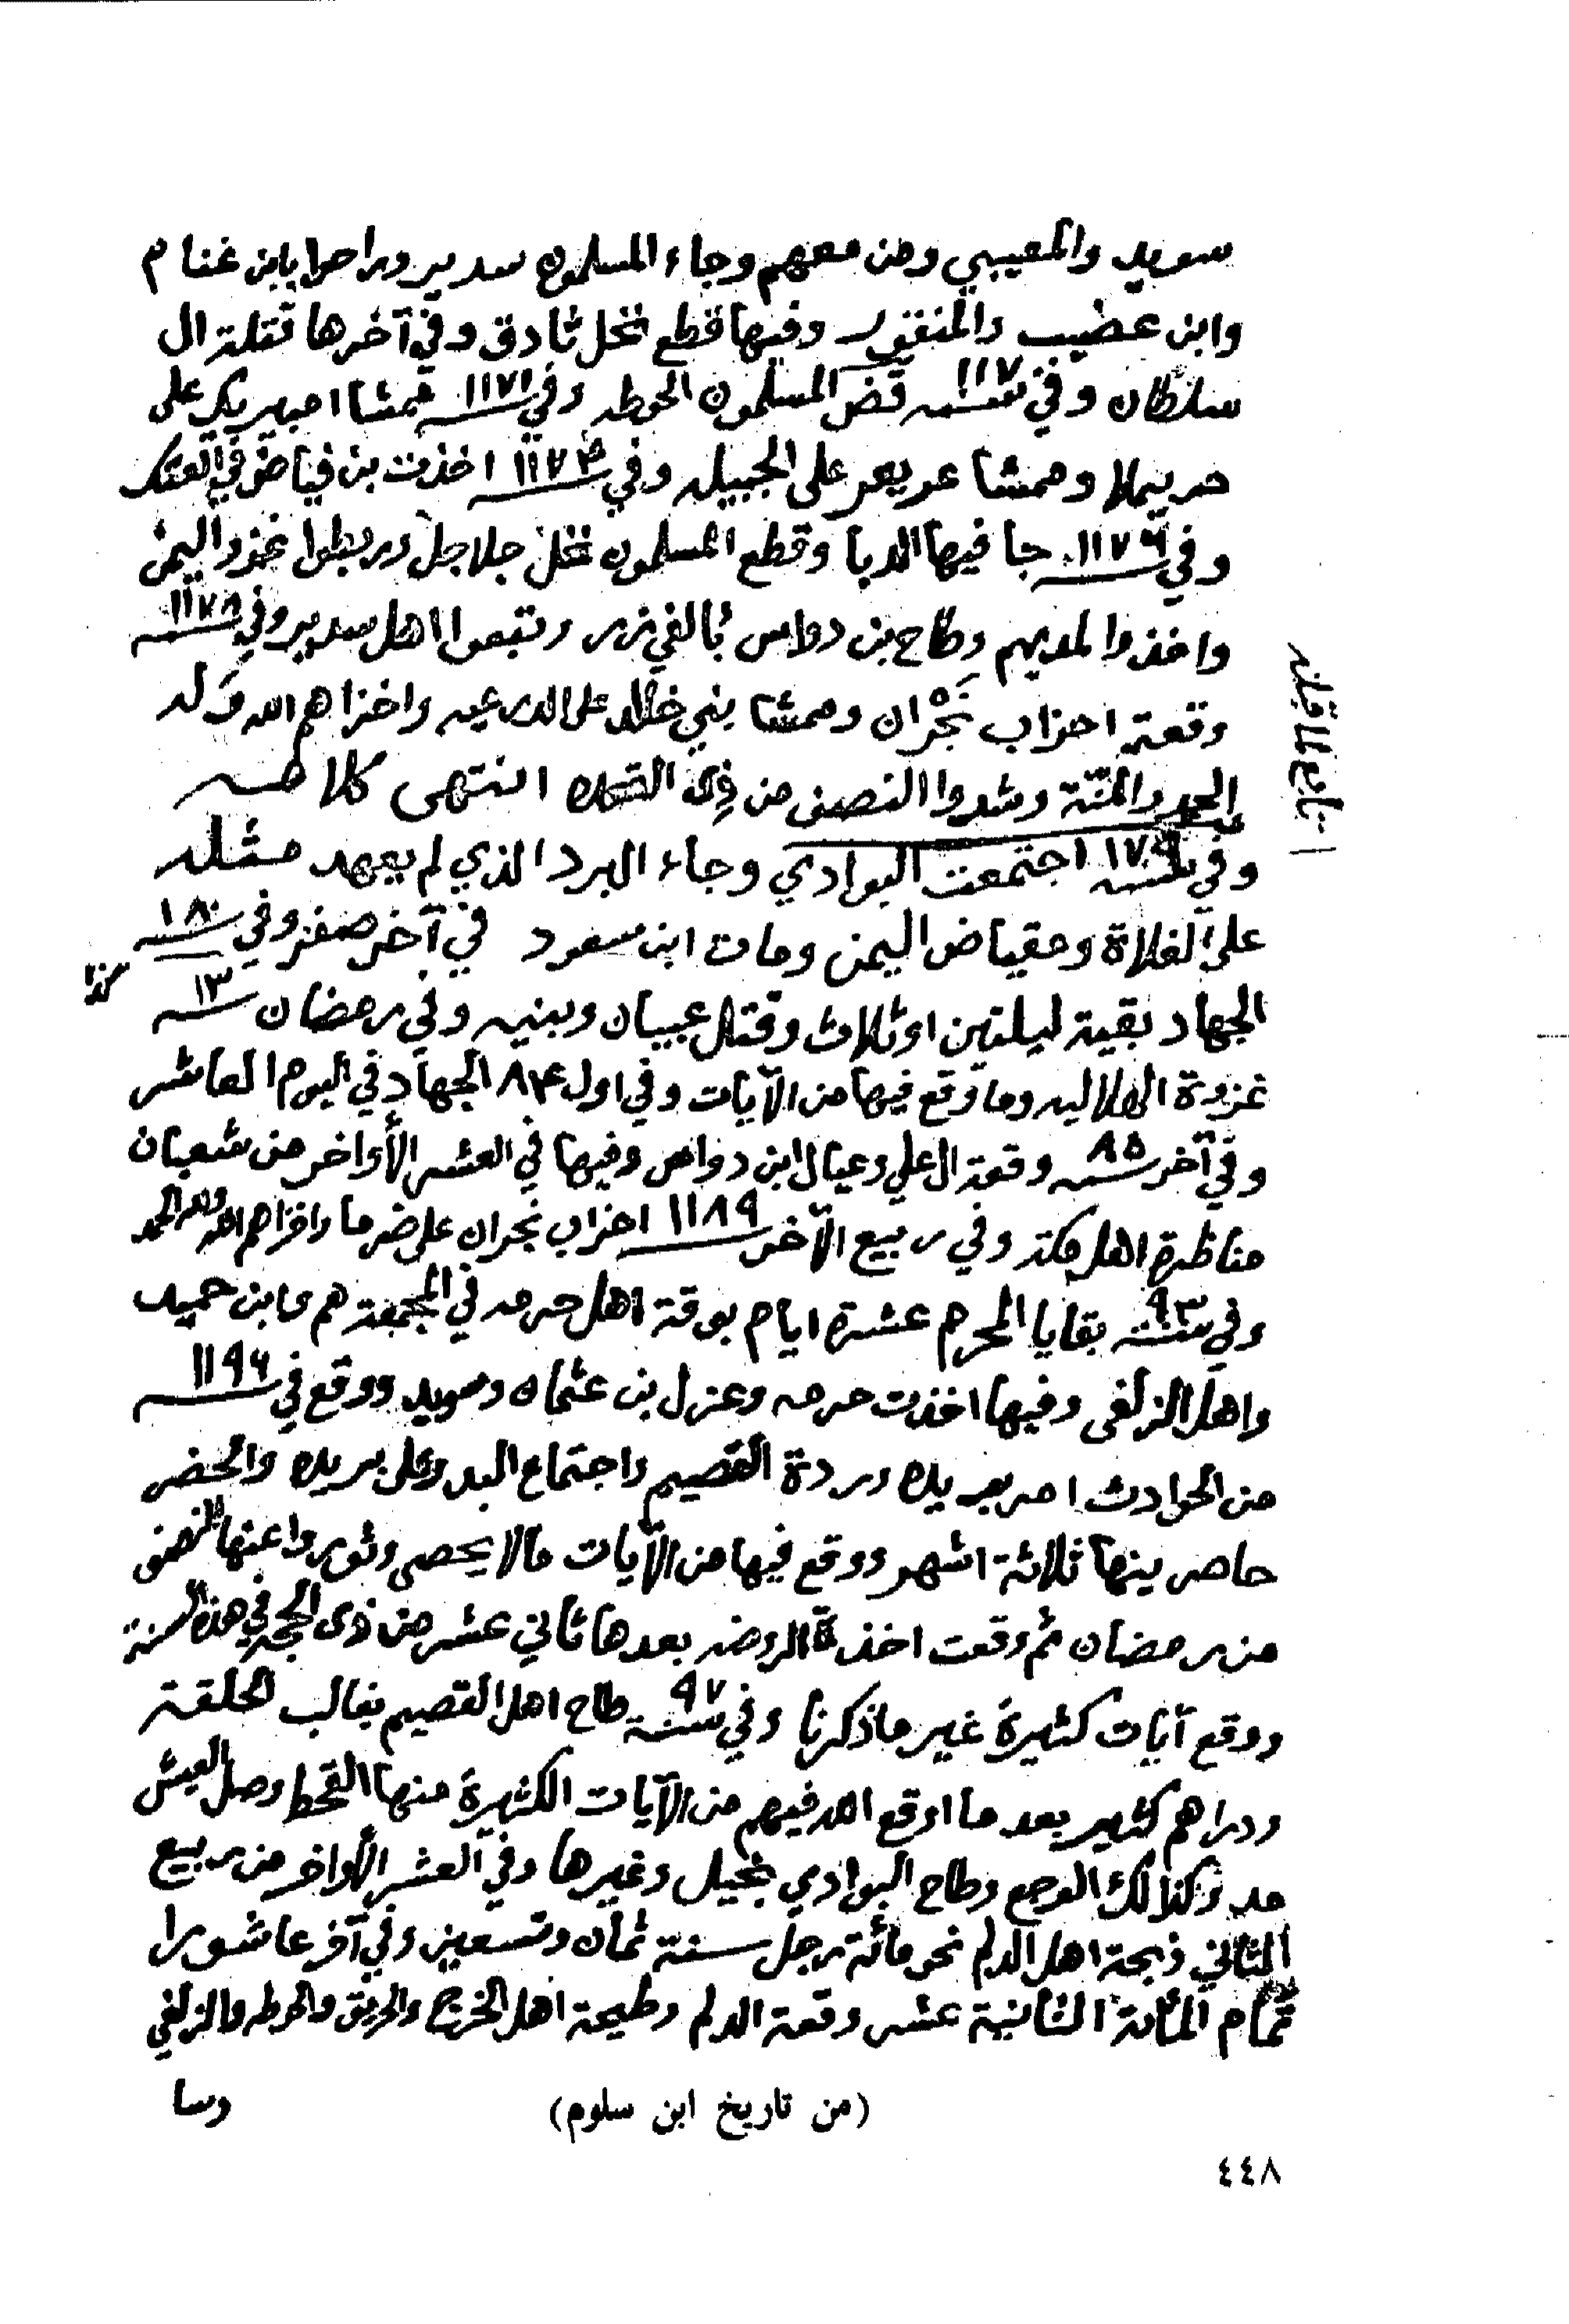 سويد والمعيبي ومن معهم وجاء المسلمون سدير وراحوا بابن غنام
وابن عضيب والمنقور وفيها قطع نخل ثادق وفي آخرها قتلة ال
سلطان وفي سنة ١١٧ قض المسلمون الحوطه وفي ١١٧١ ممشا مبيريك على
حريملا وممشا عريعر على الجبيله وفي ١١٧٣ اخذت بن فياض في العتك
وفي ١١٧٦ جا فيها الدبا وقطع المسلمون نخل جلاجل وربطوا غزو اليمن
واخذوا لمديهم وطاح بن دواس بالفي زر وتبعوا اهل سدير وفي ١١٧٨
وقعة احزاب نَجْران وممشا بني خالد على الدرعيه واخزاهم الله وله
الحمد والمنّة وشدوا النصف من ذي القعده انتهى كلامه
وفي سنة ١٧٩ اجتمعت البوادي وجاء البرد الذي لم يعهد مثله
على الفلاة ومقياض اليمن ومات ابن سعود في آخر صفر وفي سنة ١٨٠
الجهاد بقية ليلتين او ثلاث وقتل عبيان وبنيه وفي رمضان ١٣ كذا
غزوة الهلاليه وما وقع فيها من الآيات وفي اول ٨٤ الجهاد في اليوم العاشر
وفي آخر سنة ٨٥ وقعة ال علي وعيال ابن دواس وفيها في العشر الأواخر من شعبان
مناظرة اهل مكة وفي ربيع الآخر ١١٨٩ احزاب نجران على ضرما واخزاهم الله وله الحمد
وفي سنة ٩٣ بقايا المحرم عشرة ايام بوقة اهل حرمه في المجمعة هم وابن حميد
واهل الزلفى وفيها اخذت حرمه وعزل بن عثمان وسويد ووقع في ١١٩٦
من الحوادث امر بريده وردة القصيم واجتماع البدو على بريده والحضر
حاصرينها ثلاثة اشهر ووقع فيها من الآيات مالا يحصى وثوروا عنها النصف
من رمضان ثم وقعت اخذة الروضه بعدها ثاني عشر من ذي الحجه في هذه السنة
ووقع آيات كثيرة غير ما ذكرنا وفي سنة ٩٧ طاح اهل القصيم بغالب الحلقة
ودراهم كثير بعد ما اوقع الله فيهم من الآيات الكثيرة منها القحط وصل العيش
مد وكذالك الوجع وطاح البوادي بخيل وغيرها وفي العشر الأواخر من ربيع
الثاني ذبحة اهل الدلم نحو مائة رجل سنة ثمان وتسعين وفي آخر عاشورا
تمام المائة الثانية عشر وقعة الدلم وطيحة اهل الخرج والحريق والحوطه والزلفي
وسا
(من تاريخ ابن سلوم)
٤٤٨
١- تابع لما قبله